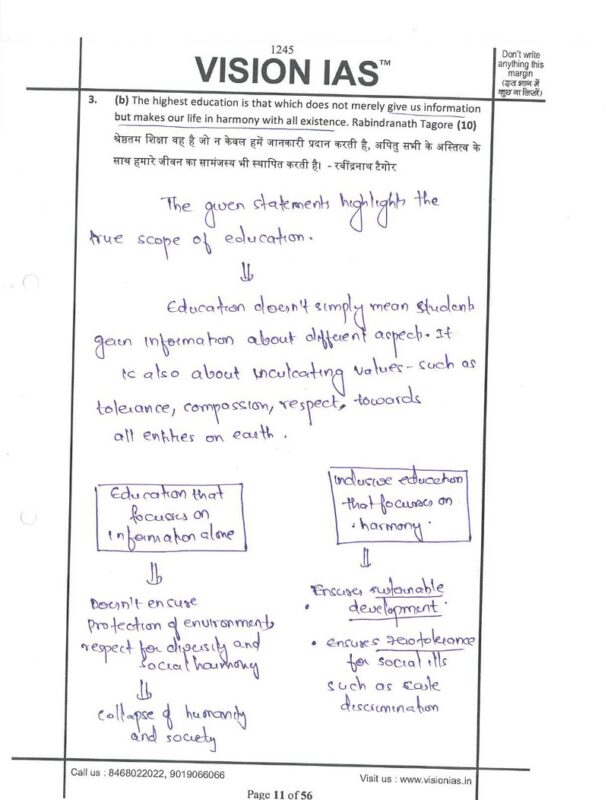 1245
VISION IAS™
Don't write
anything this
margin
(इस भाग में
कुछ ना लिखें)
3. (b) The highest education is that which does not merely give us information
but makes our life in harmony with all existence. Rabindranath Tagore (10)
श्रेष्ठतम शिक्षा वह है जो न केवल हमें जानकारी प्रदान करती है, अपितु सभी के अस्तित्व के
साथ हमारे जीवन का सामंजस्य भी स्थापित करती है। - रवींद्रनाथ टैगोर
The given statements highlights the
true scope of education.
⇓
Education doesn't simply mean students
gain information about different aspects. It
is also about inculcating values - such as
tolerance, compassion, respect, towards
all entities on earth.
Education that
focuses on
information alone
⇓
Doesn't ensure
protection of environment,
respect for diversity and
social harmony
⇓
collapse of humanity
and society
inclusive education
that focuses on
harmony.
⇓
Ensures sustainable
• development.
• ensures zero tolerance
for social ills
such as caste
discrimination
Call us : 8468022022, 9019066066
Visit us : www.visionias.in
Page 11 of 56